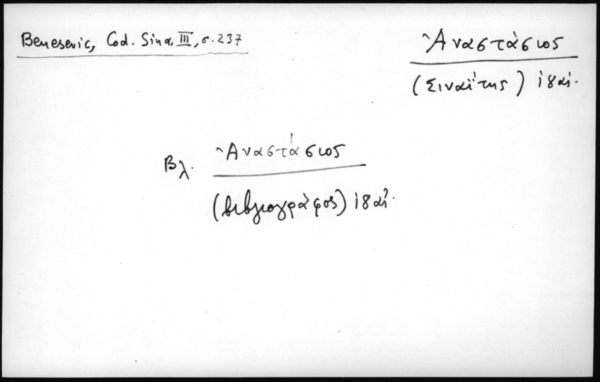 Benesevic, Cod. Sina. III, σ. 237
Ἀναστάσιος
(Σιναΐτης) ι8 αἰ.
Βλ. Ἀναστάσιος
(βιβλιογράφος) ι8 αἰ.